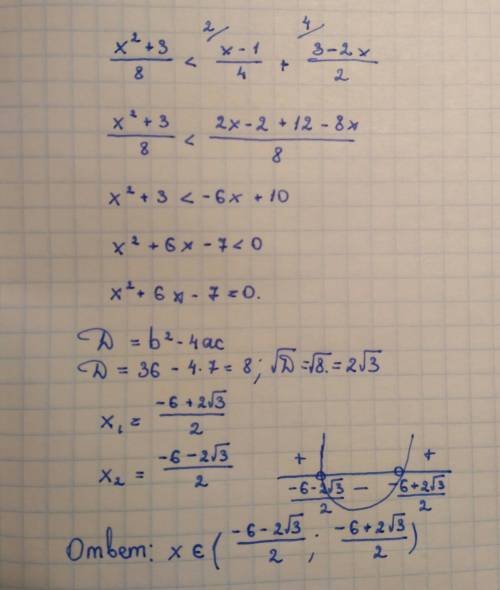 2/ 4/
x² + 3 / 8 < x - 1 / 4 + 3 - 2x / 2
x² + 3 / 8 < 2x - 2 + 12 - 8x / 8
x² + 3 < -6x + 10
x² + 6x - 7 < 0
x² + 6x - 7 = 0.
D = b² - 4ac
D = 36 - 4·7 = 8; √D = √8. = 2√3
x₁ = -6 + 2√3 / 2
x₂ = -6 - 2√3 / 2
+ - +
-6 - 2√3 / 2 -6 + 2√3 / 2
Ответ: x ∈ ( -6 - 2√3 / 2 ; -6 + 2√3 / 2 )